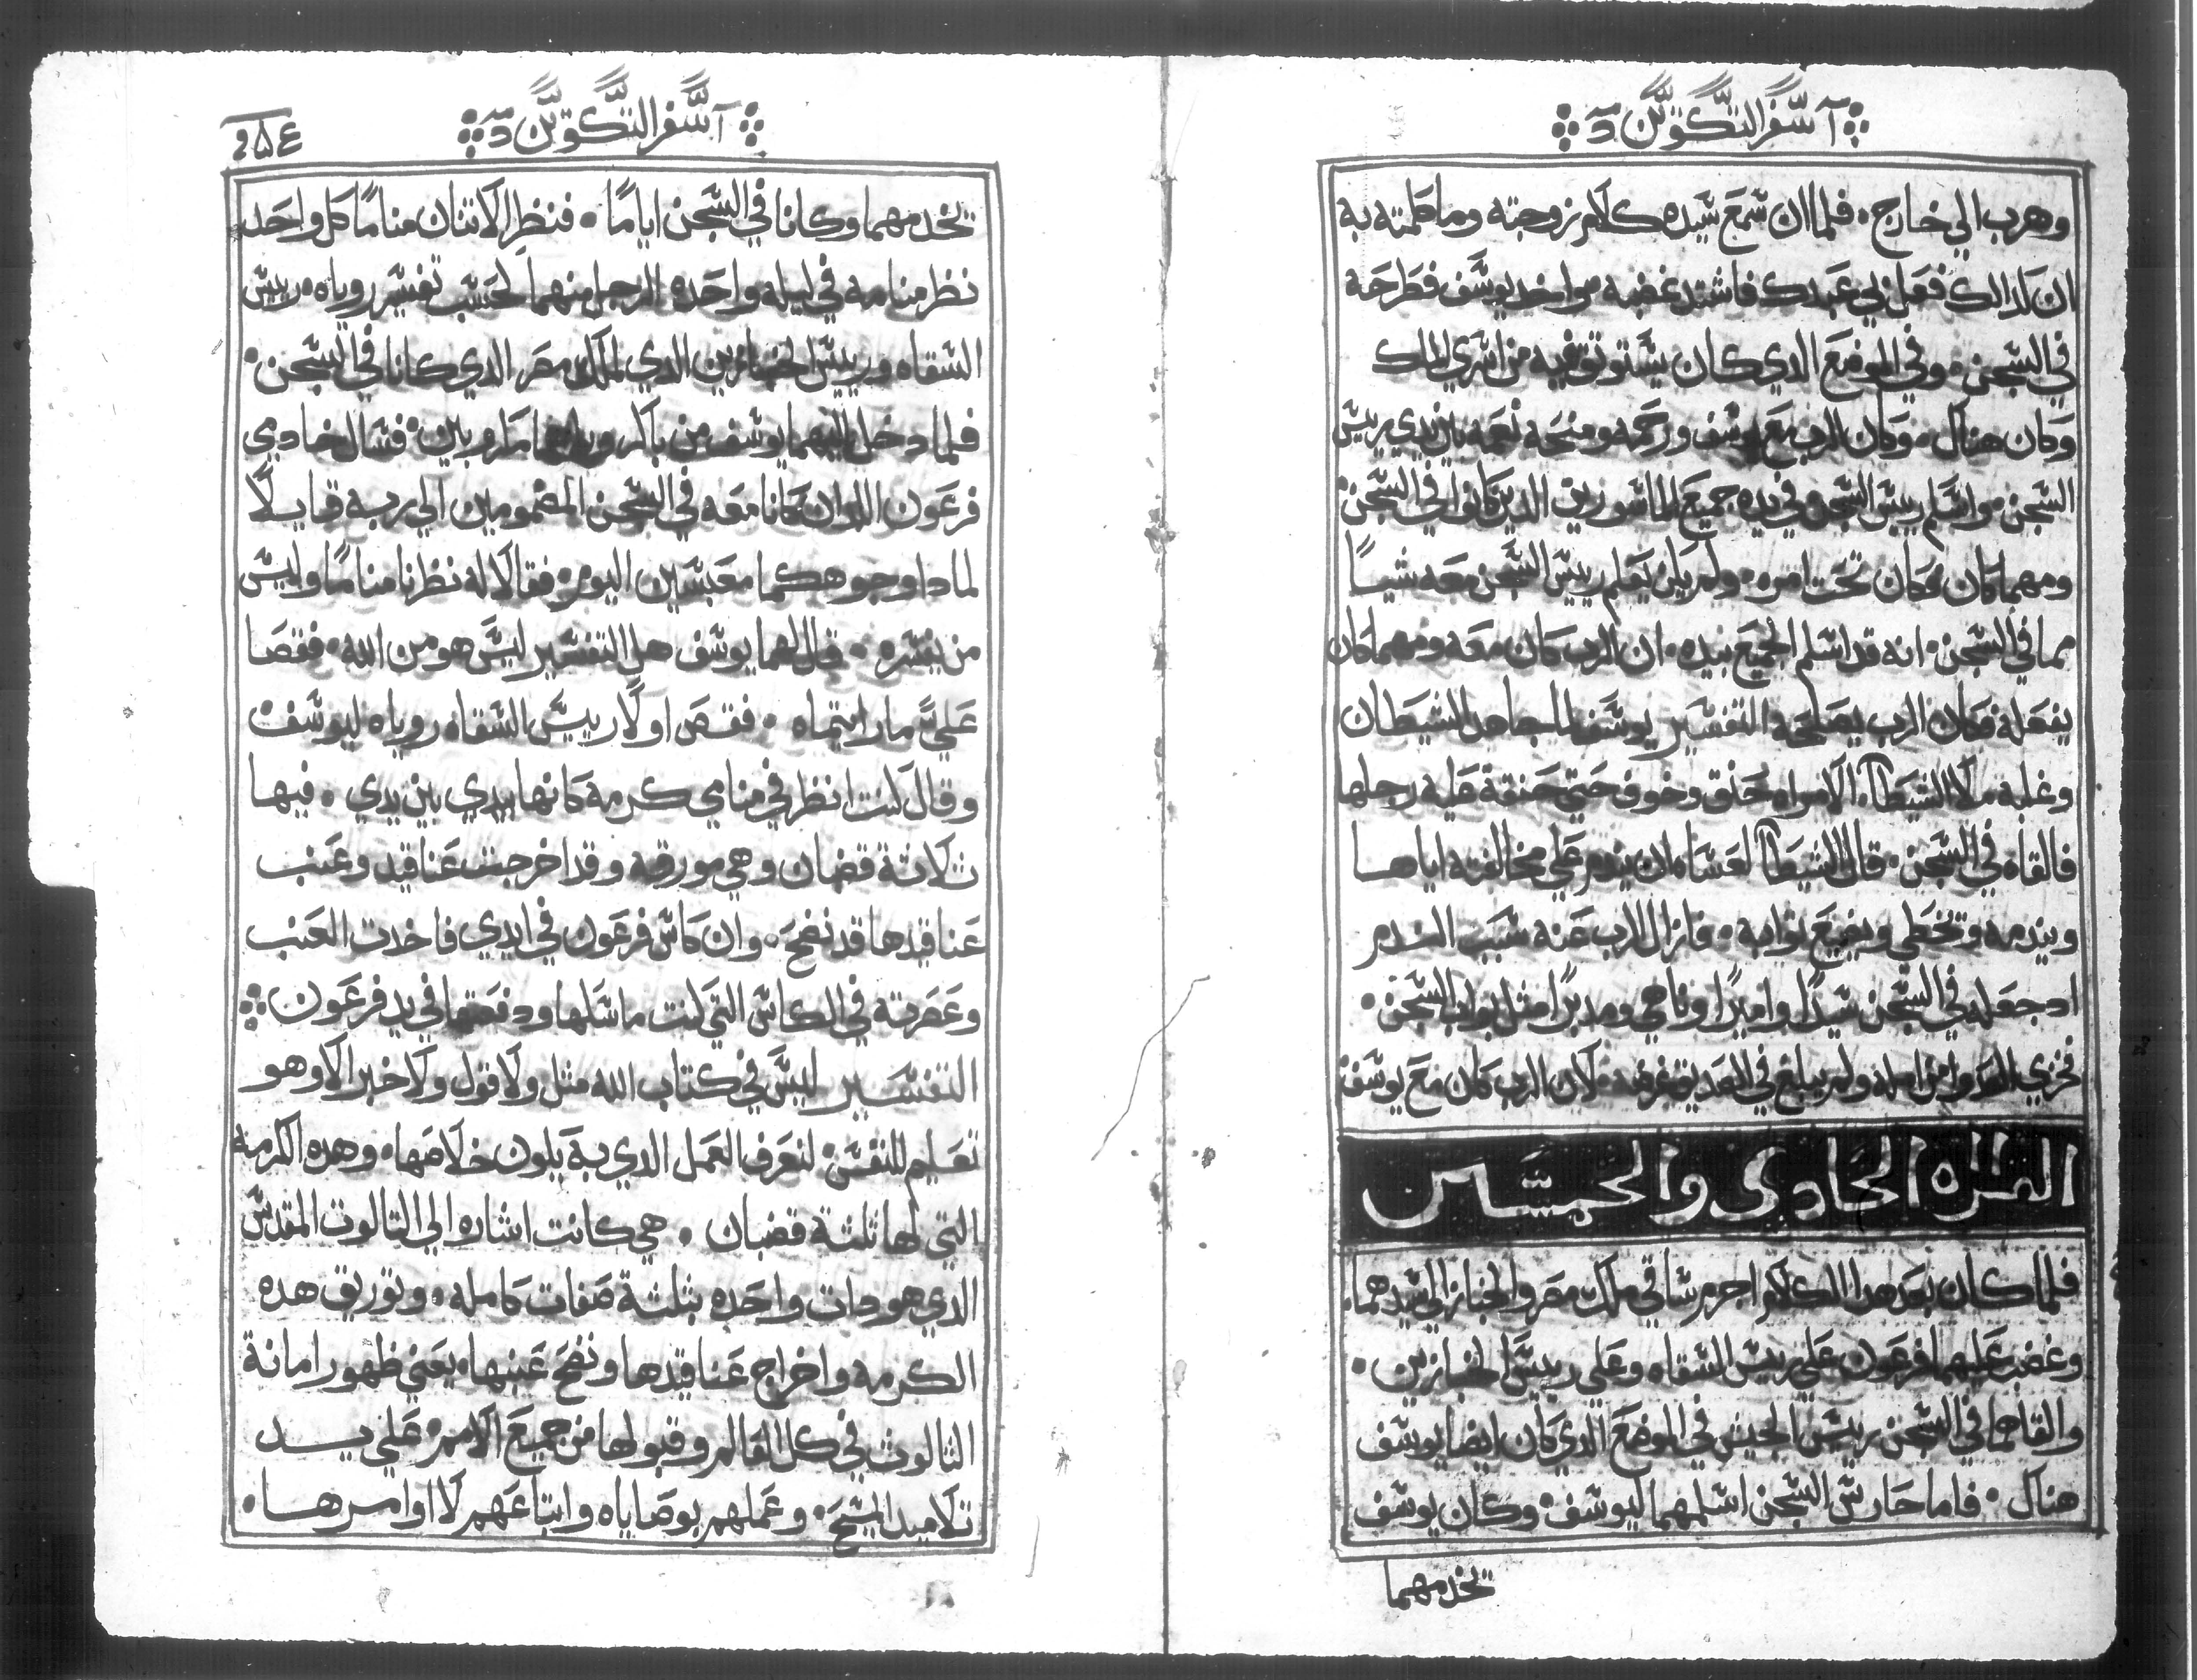 آ سفر التكوين د
وهرب الي خارج . فلما ان سمع سيده كلام زوجته وما كلمته به
ان كدالك فعل بي عبدك فاشتد غضبه . واخد يوسف فطرحه
في السجن . وفي الموضع الدي كان يستوتق فيه من اسري الملك
وكان هناك . وكان الرب مع يوسف ورحمه ومنحه نعمه بين يدي رييس
السجن . واسلم رييس السجن في يده جميع الماسورين الدين كانوا في السجن
ومهما كان فكان تحت امره . ولم يكن يعلم رييس السجن معه شياً
مما في السجن . انه قد اسلم الجميع بيده . ان الرب كان معه ومهما كان
يفعله فكان الرب يصلحه التفسير يوسف لما جاهد الشيطان
وغلبه ملا الشيطان الامراه حنق وخوف حتي حنقة عليه رجلها
فالقاه في السجن . قال الشيطان لعساه ان يندم علي مخالفته اياها
ويندمه وتخطي ويضيع توابه . فازال الرب عنه سبب الندم
اد جعله في السجن سيداً واميراً وناهي ومدبراً مثل بواب السجن .
فخزي العدو من امله ولم يبلغ في الصديق غرضه . لان الرب كان مع يوسف
القراه الحادي والخمسين
فلما كان بعد هدا الكلام اجرم ساقي ملك مصر والخباز الي سيدهما
وغضب عليهما فرعون علي رييس السقاه وعلي رييس الخبازين .
والقاهما في السجن رييس الجيش في الموضع الدي كان ايضا يوسف
هناك . فاما حارس السجن اسلمهما ليوسف . وكان يوسف
تخدمهما
آ سفر التكوين د
نخدمهما وكانا في السجن اياماً . فنظر الاتنان مناماً كل واحد
نظر منامه في ليله واحده الرجل منهما لحسب تفسير روياه . رييس
السقاه ورييس الخبازين الدي لملك مصر الدي كانا في السجن .
فلما دخل اليهما يوسف من باكر وراهما مارويين . فسال خادمي
فرعون اللدان كانا معه في السجن المغمومين الي ربه قايلاً
لمادا وجوهكما معبسين اليوم . فقالا له نظرنا مناماً وليس
من يفسره . قال لهما يوسف هل التفسير ليس هو من الله . فقصا
علي ما رايتماه . فقص اولاً رييس السقاه روياه ليوسف
وقال كنت انظر في منامي كرمة كانها بيدي بين يدي . فيها
تلاتة قضبان وهي مورقه وقد اخرجت عناقيد وعنب
عناقيدها قد نضج . وان كاس فرعون في ايدي فاخدت العنب
وعصرته في الكاس التي كنت ماسكها ودفعتها في يد فرعون
التفسير ليس في كتاب الله مثل ولا قول ولا خبر الا وهو
تعليم للنفس لتعرف العمل الدي به يكون خلاصها . وهده الكرمه
التي لها ثلثة قضبان . هي كانت اشاره الي الثالوث المقدس
الدي هو دات واحده بثلثة صفات كامله . وتوريق هده
الكرمه واخراج عناقيدها ونضج عنبها . يعني ظهور امانة
الثالوث في كل العالم وقبولها من جميع الامم علي يد
تلاميد المسيح . وعملهم بوصاياه واتباعهم لااوامرها .